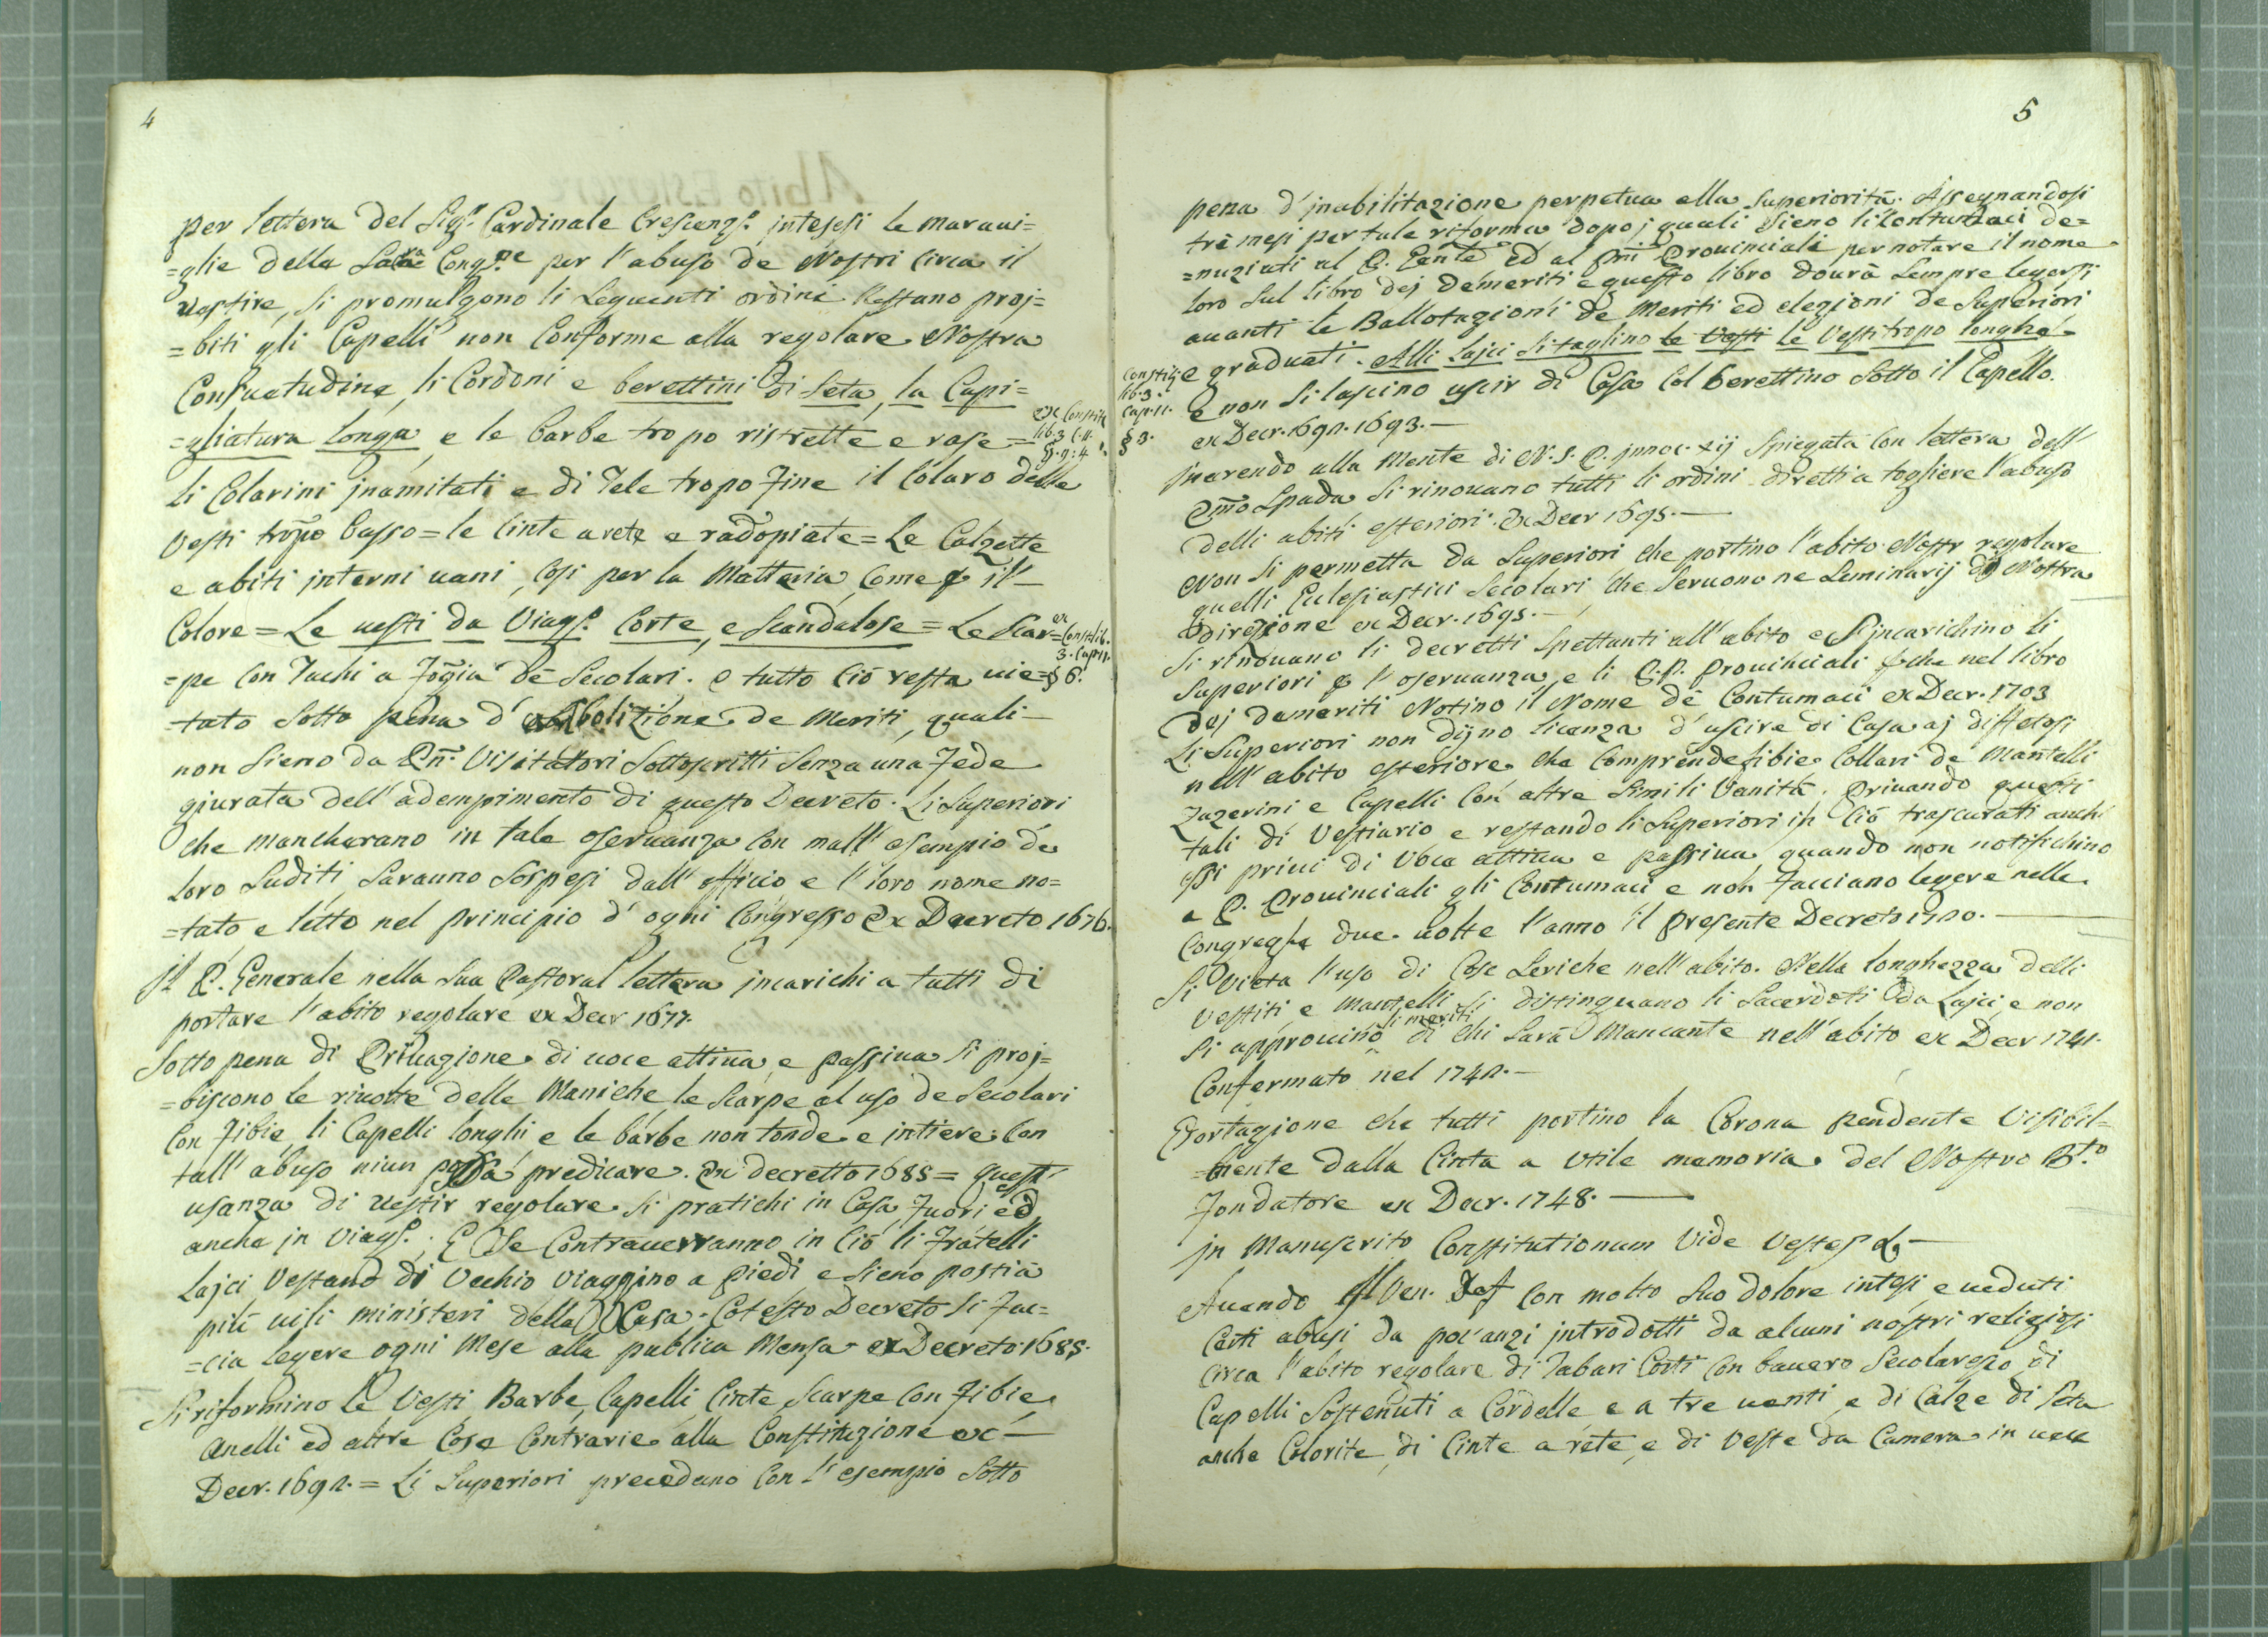 4
per lettera del Sigr. Cardinale Crescenzo. intesesi le maraui=
=glie della Sacra Congne per l'abuso de Nostri circa il
Vestire, si promulgono li seguenti ordini Restano proj=
=biti gli Capelli non Conforme alla regolare Nostra
Consuetudine, li Cordoni e berettini di Seta, la Capi=
=gliatura longa, e le barbe tropo ristrette e rase =
ex Constit
lib. 3 C. 11.
§. 9: 4
li Colarini jnamitati e di Tele tropo fine il Colaro delle
Vesti tropo basso = le Cinte a rete e radopiate = Le Calzette
e abiti jnterni uani, Cosi per la Matteria, Come p il
Colore = Le uesti da Viago. Corte, e Scandalose = Le Scar=
ex
Constit lib.
3. Cap. 11.
§ 6.
=pe Con Tachi a fogia de Secolari. e tutto ciò resta uie=
=tato Sotto pena d' Abolizione de Meriti, quali
non Sieno da Pri. Visitatori Sottoscritti Senza una Fede
giurata dell' adempimento di questo Decreto. Li Superiori
che mancherano in tale oseruanza Con mall' esempio de
loro Suditi, Saranno Sospesi dall' officio e l' loro nome no=
=tato e letto nel principio d' ogni Congresso Ex Decreto 1676.
jl P. Generale nella Sua Pastoral lettera jncarichi a tutti di
portare l'abito regolare ex Decr 1677.
Sotto pena di Priuazione di uoce attiua, e passiua Si proj=
=biscono le riuolte delle Maniche le Scarpe al uso de Secolari
Con fibie, li Capelli longhi e le barbe non tonde e intiere. Con
tall' abuso niun possa predicare. Ex decretto 1685 = Quest'
usanza di uestir regolare Si pratichi in Casa fuori ed
anche jn Viago.; E Se Contrauerranno in Ciò li Fratelli
Lajci Vestano di Vechio Viaggino a Piedi e Sieno posti a
più uili ministeri della Casa. Cotesto Decreto Si fac=
=cia legere ogni Mese alla publica Mensa ex Decreto 1685.
Si riformino le Vesti, Barbe, Capelli, Cinte, Scarpe Con fibie,
Anelli ed altre Cose Contrarie alla Constituzione ex
Decr. 1692. = Li Superiori precedano Con l' esempio Sotto
5
pena d' jnabilitazione perpetua alla Superiorità. Assegnandosi
trè mesi per tale riforma dopo j quali Sieno li Contumaci de=
=nuziati al P. Ganle ed al Pri Prouinciali per notare il nome
loro Sul libro dej demeriti e questo libro dourà Sempre legersi
auanti le Ballotazioni de Meriti ed elezioni de Superiori
e graduati. Alli Lajci Si taglino le Vesti le Vesti tropo longhe
Constit
lib. 3.
Cap. 11.
§ 3.
e non Si lascino uscir di Casa Col berettino Sotto il Capello.
ex Decr. 1692. 1693.
jnerendo alla Mente di N. S. P. jnnoc. xij Spiegata Con lettera dell'
Emo Spada Si rinouano tutti li ordini diretti a togliere l'abuso
delli abiti esteriori. Ex Decr 1695.
Non Si permetta da Superiori che portino l'abito Nostr regolare
quelli Eclesiastici Secolari, che Seruono ne Seminarij di Nostra
direzione ex Decr. 1695.
Si rinouano li decretti Spettanti all' abito e S' jncarichino li
Superiori p l' oseruanza, e li P. P. Prouinciali p che nel libro
dej demeriti Notino il Nome de Contumaci ex Decr. 1703
Li Superiori non dijno licenza d' uscire di Casa aj diffetosi
nell' abito esteriore che Comprende fibie Collari de Mantelli
Zazerini e Capelli Con altre Simili Vanità. Priuando questi
tali di Vestiario e restando li Superiori in Ciò trascurati anch'
essi priui di Voce attiua e passiua, quando non notifichino
a P. Prouinciali gli Contumaci e non facciano legere nelle
Congreghe due uolte l'anno il presente Decreto 1720.
Si Vieta l'uso di Cose Seriche nell' abito. Nella longhezza delli
Vestiti e Mantelli Si distinguano li Sacerdoti da Lajci, e non
Si approuino li meriti di chi Sarà Mancante nell' abito ex Decr 1741.
Confermato nel 1742.
Esortazione che tutti portino la Corona pendente Visibil=
=mente dalla Cinta a utile memoria del Nostro B.to
Fondatore ex Decr. 1748.
jn Manuscrito Constitutionum Vide Vestes &
Auendo jl Ven. Def Con molto Suo dolore intesi, e ueduti
Certi abusi da poc' anzi jntrodotti da alcuni nostri religiosi
circa l'abito regolare di Tabari Corti Con bauero Secolaresco di
Capelli Sostenuti a Cordelle e a tre uenti, e di Calze di Seta
anche Colorite, di Cinte a rete, e di Veste da Camera in uece